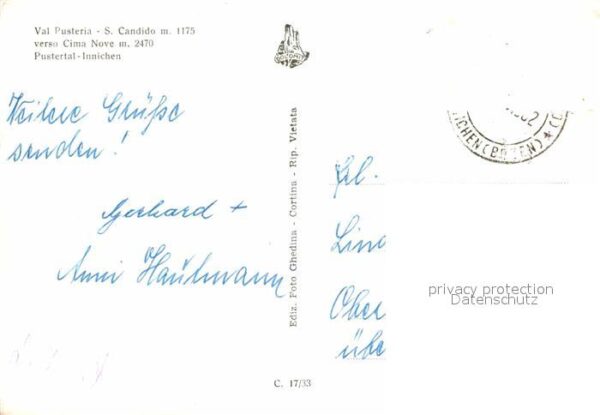 Val Pusteria - S. Candido m. 1175
verso Cima Nove m. 2470
Pustertal-Innichen
Grüße
senden!
Gerhard +
Anni Haulmann
Ediz. Foto Ghedina - Cortina - Rip. Vietata
C. 17/33
ICHEN (BOZEN) ★
Frl.
Lin
Ober
übe
privacy protection
Datenschutz